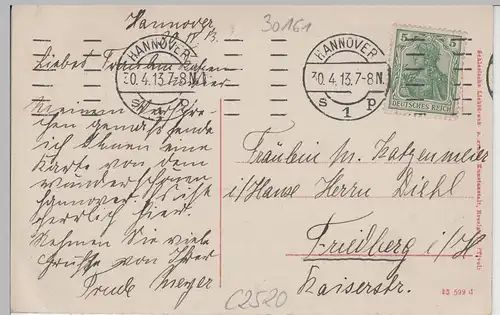 Hannover,
30 IV 13.
30161
Liebes Fräulein Katzen
meier
HANNOVER
30.4.13.7-8N.
s 1 p
HANNOVER
30.4.13.7-8N.
s 1 p
5 5
DEUTSCHES REICH
Meinem Verspre-
chen gemäß sende
ich Ihnen eine
Karte von dem
wunderschönen
Hannover. Es ist
herrlich hier.
Nehmen Sie viele
Grüße von Ihrer
Trude Meyer
Fräulein M. Katzenmeier
i/Hause Herrn Diehl
Friedberg i/H
Kaiserstr.
C2520